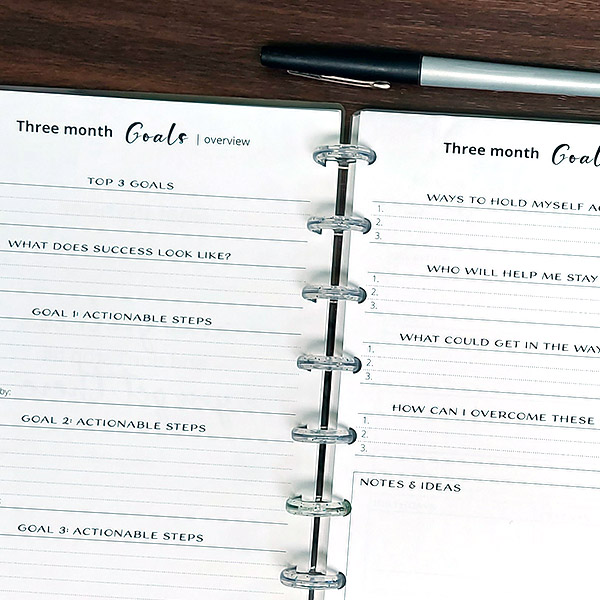 Three month Goals | overview
TOP 3 GOALS
WHAT DOES SUCCESS LOOK LIKE?
GOAL 1: ACTIONABLE STEPS
by:
GOAL 2: ACTIONABLE STEPS
GOAL 3: ACTIONABLE STEPS
Three month Goal
WAYS TO HOLD MYSELF A
1.
2.
3.
WHO WILL HELP ME STAY
1.
2.
3.
WHAT COULD GET IN THE WAY
1.
2.
3.
HOW CAN I OVERCOME THESE
1.
2.
3.
NOTES & IDEAS